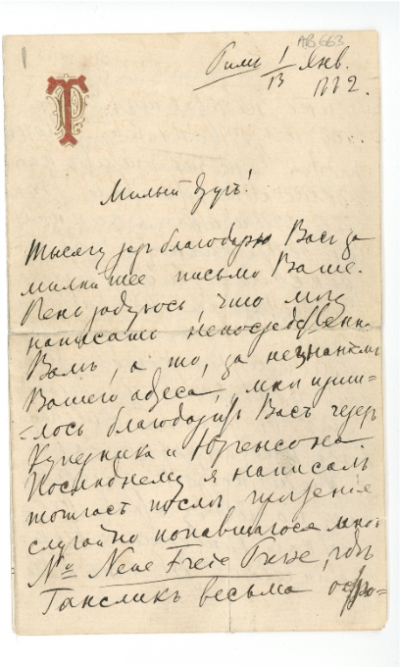 1
AB 663
Римъ 1/13 Янв.
1882.
Милый другъ!
Тысячу разъ благодарю Васъ за
милѣйшее письмо Ваше.
радуюсь, что могу
написать непосредственно
Вамъ, а то, за незнаніемъ
Вашего адреса, мнѣ приш-
лось благодарить Васъ черезъ
и Юргенсона.
Послѣднему я написалъ
тотчасъ послѣ прочтенія
случайно попавшагося мнѣ
№ Neue Freie Presse, гдѣ
Гансликъ весьма